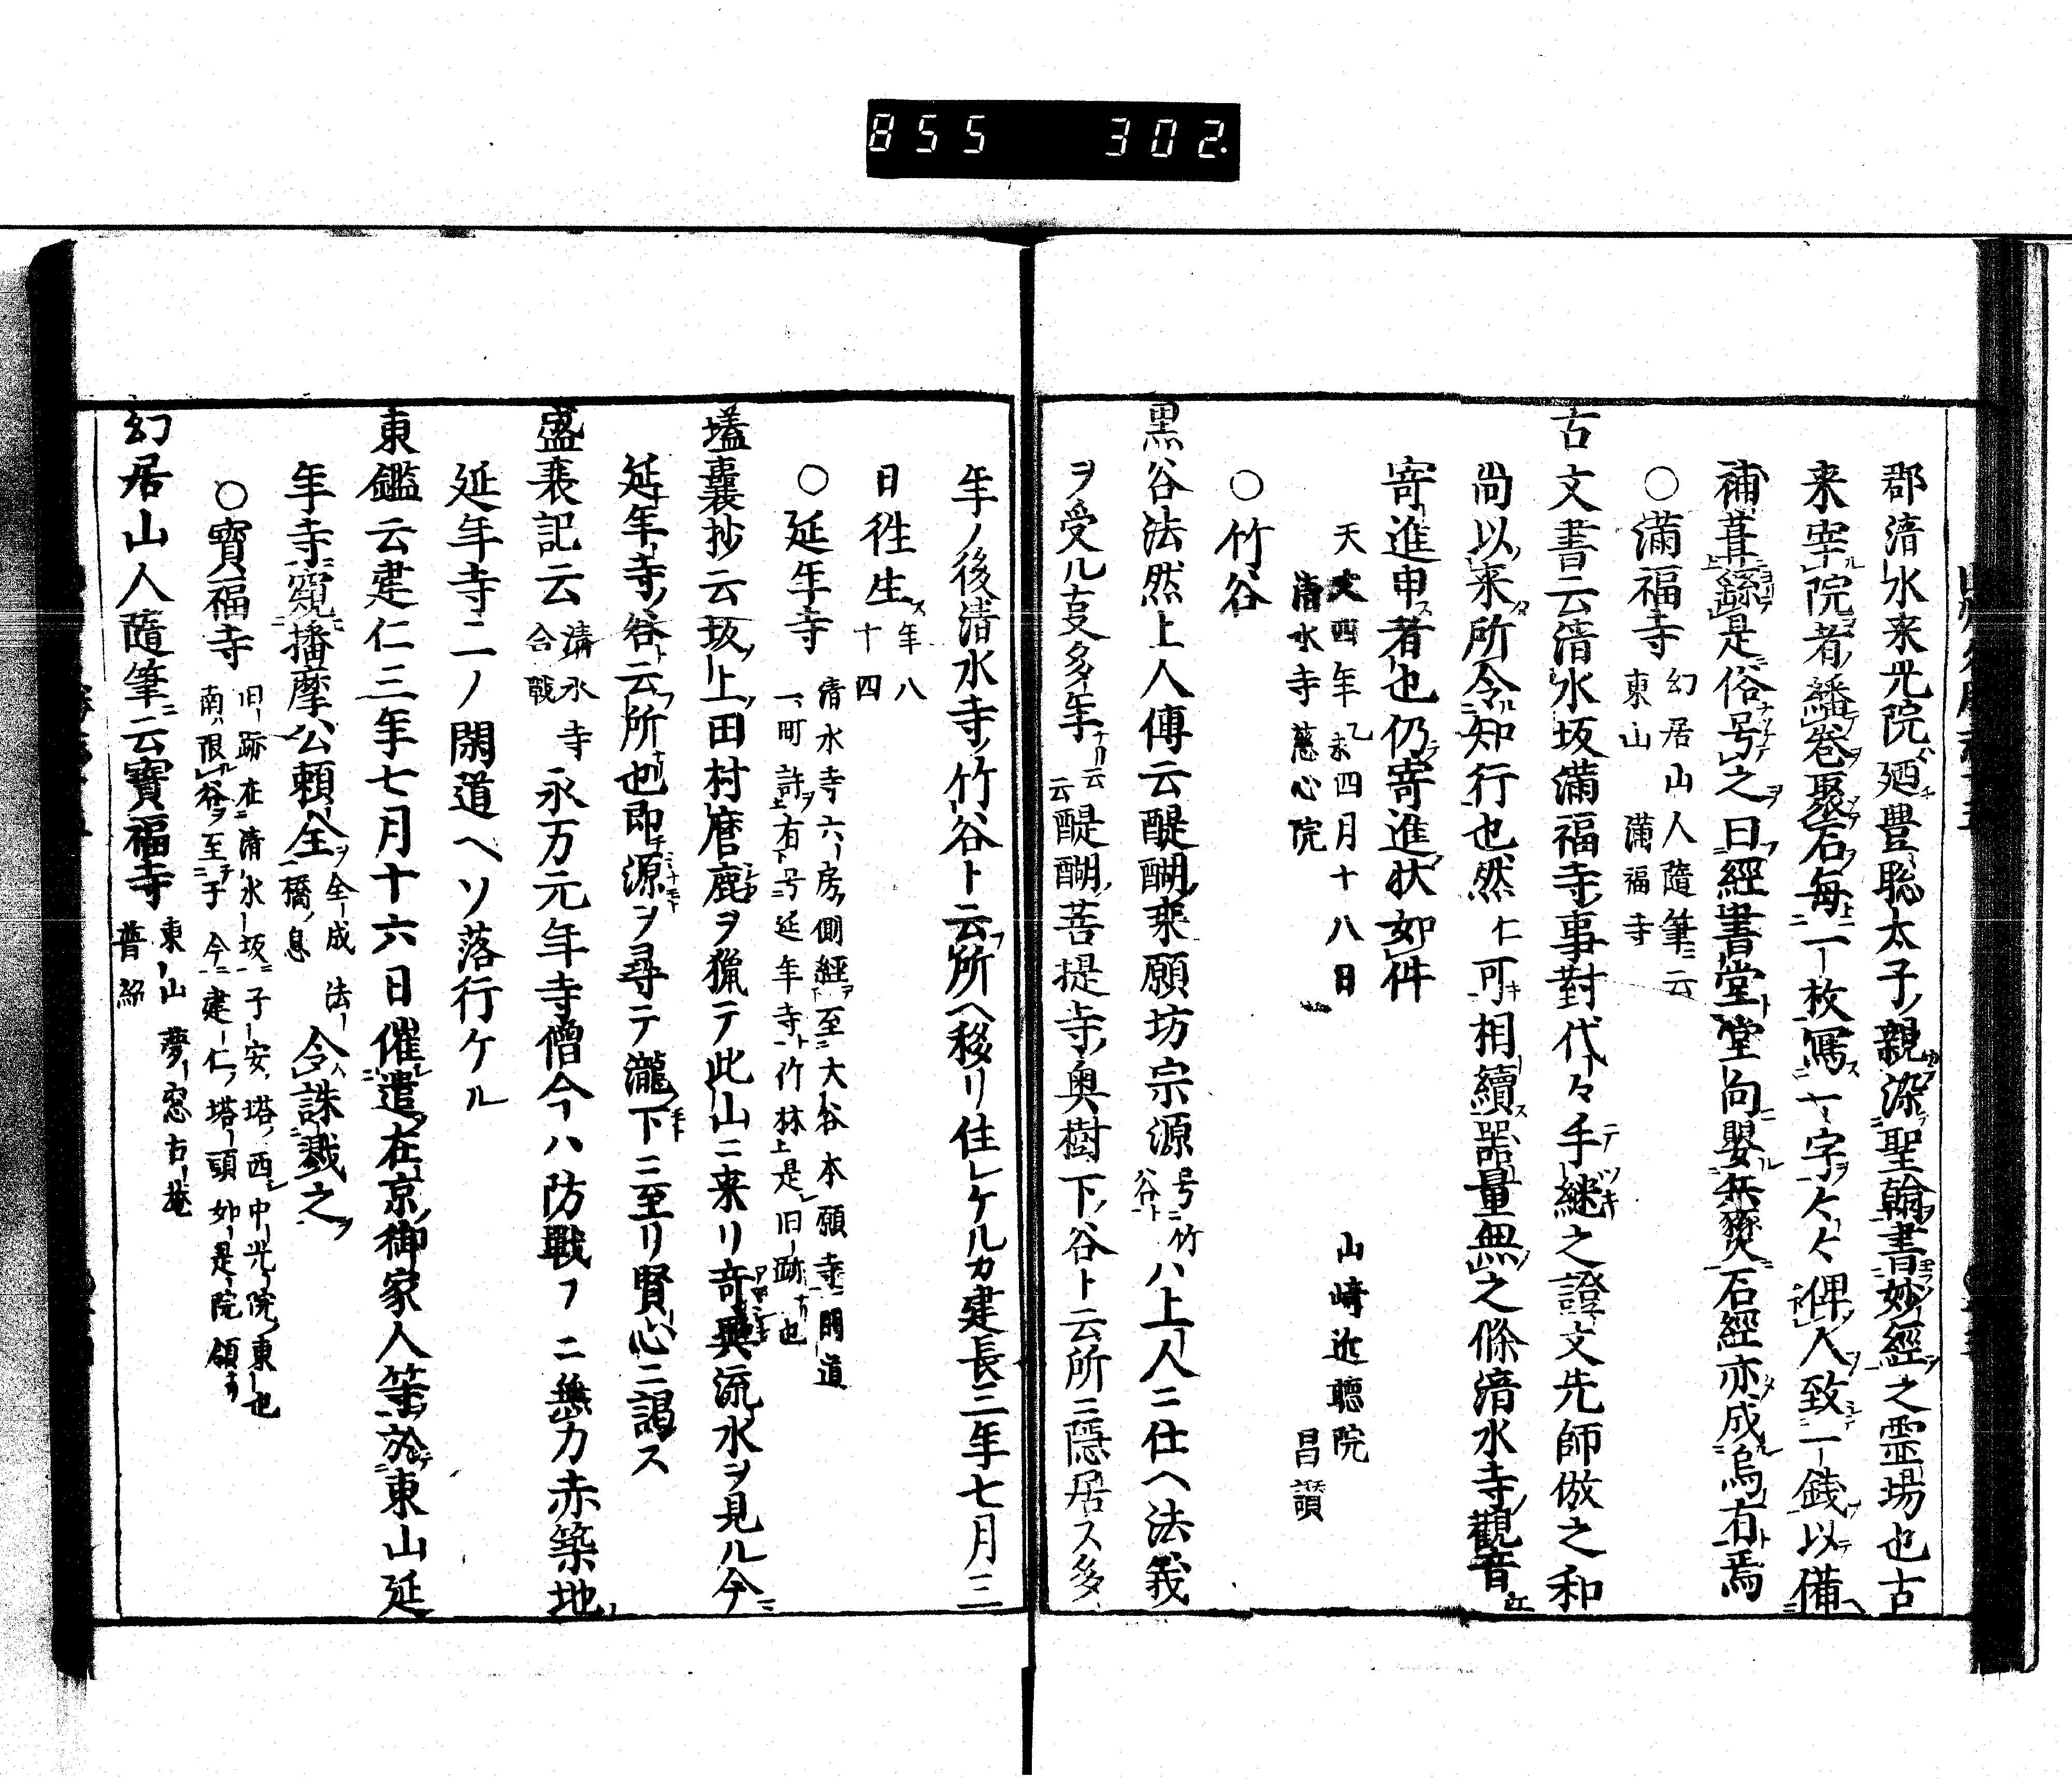 855 302.
郡清水来光院廼豊聡太子親染聖翰書妙經之霊場也古
来宰院者繙巻聚石毎一枚寫一字人人俾人致一銭以備
補葺繇是俗号之曰經書堂堂向嬰兵燹石經亦成烏有焉
○満福寺 幻居山人隨筆ニ云
東山 満福寺
古文書云清水坂満福寺事對代々手継之證文先師倣之和
尚以来所令知行也然仁可相續器量無之條清水寺觀音江
寄進申者也仍寄進状如件
天文四年乙未四月十八日 山崎近聴院
清水寺慈心院 昌讃
○竹谷
黒谷法然上人傳云醍醐乗願坊宗源 号竹
谷ト ハ上人ニ仕ヘ法義
ヲ受ル夏多年ナリ云
云 醍醐菩提寺奥樹下谷ト云所ニ隠居ス多
年ノ後清水寺竹谷ト云所ヘ移リ住シケルカ建長三年七月三
日往生ス 年八
十四
○延年寺 清水寺六房側經至大谷本願寺間道
一町許有号延年寺竹林是旧跡也
壒囊抄云坂上田村麿鹿ヲ猟テ此山ニ来リ奇異流水ヲ見ル今
延年寺谷云所也即源ヲ尋テ瀧下ニ至リ賢心ニ謁ス
盛衰記云 清水寺
合戰 永万元年寺僧今ハ防戰フニ無力赤築地
延年寺二ノ閑道ヘソ落行ケル
東鑑云建仁三年七月十六日催遣在京御家人等於東山延
年寺窺播摩公頼全 全成法
橋息 令誅戮之
○寶福寺 旧跡在清水坂子安塔西中光院東也
南限谷至于今建仁塔頭如是院領ナリ
幻居山人隨筆ニ云寶福寺 東山夢窓古菴
普紹